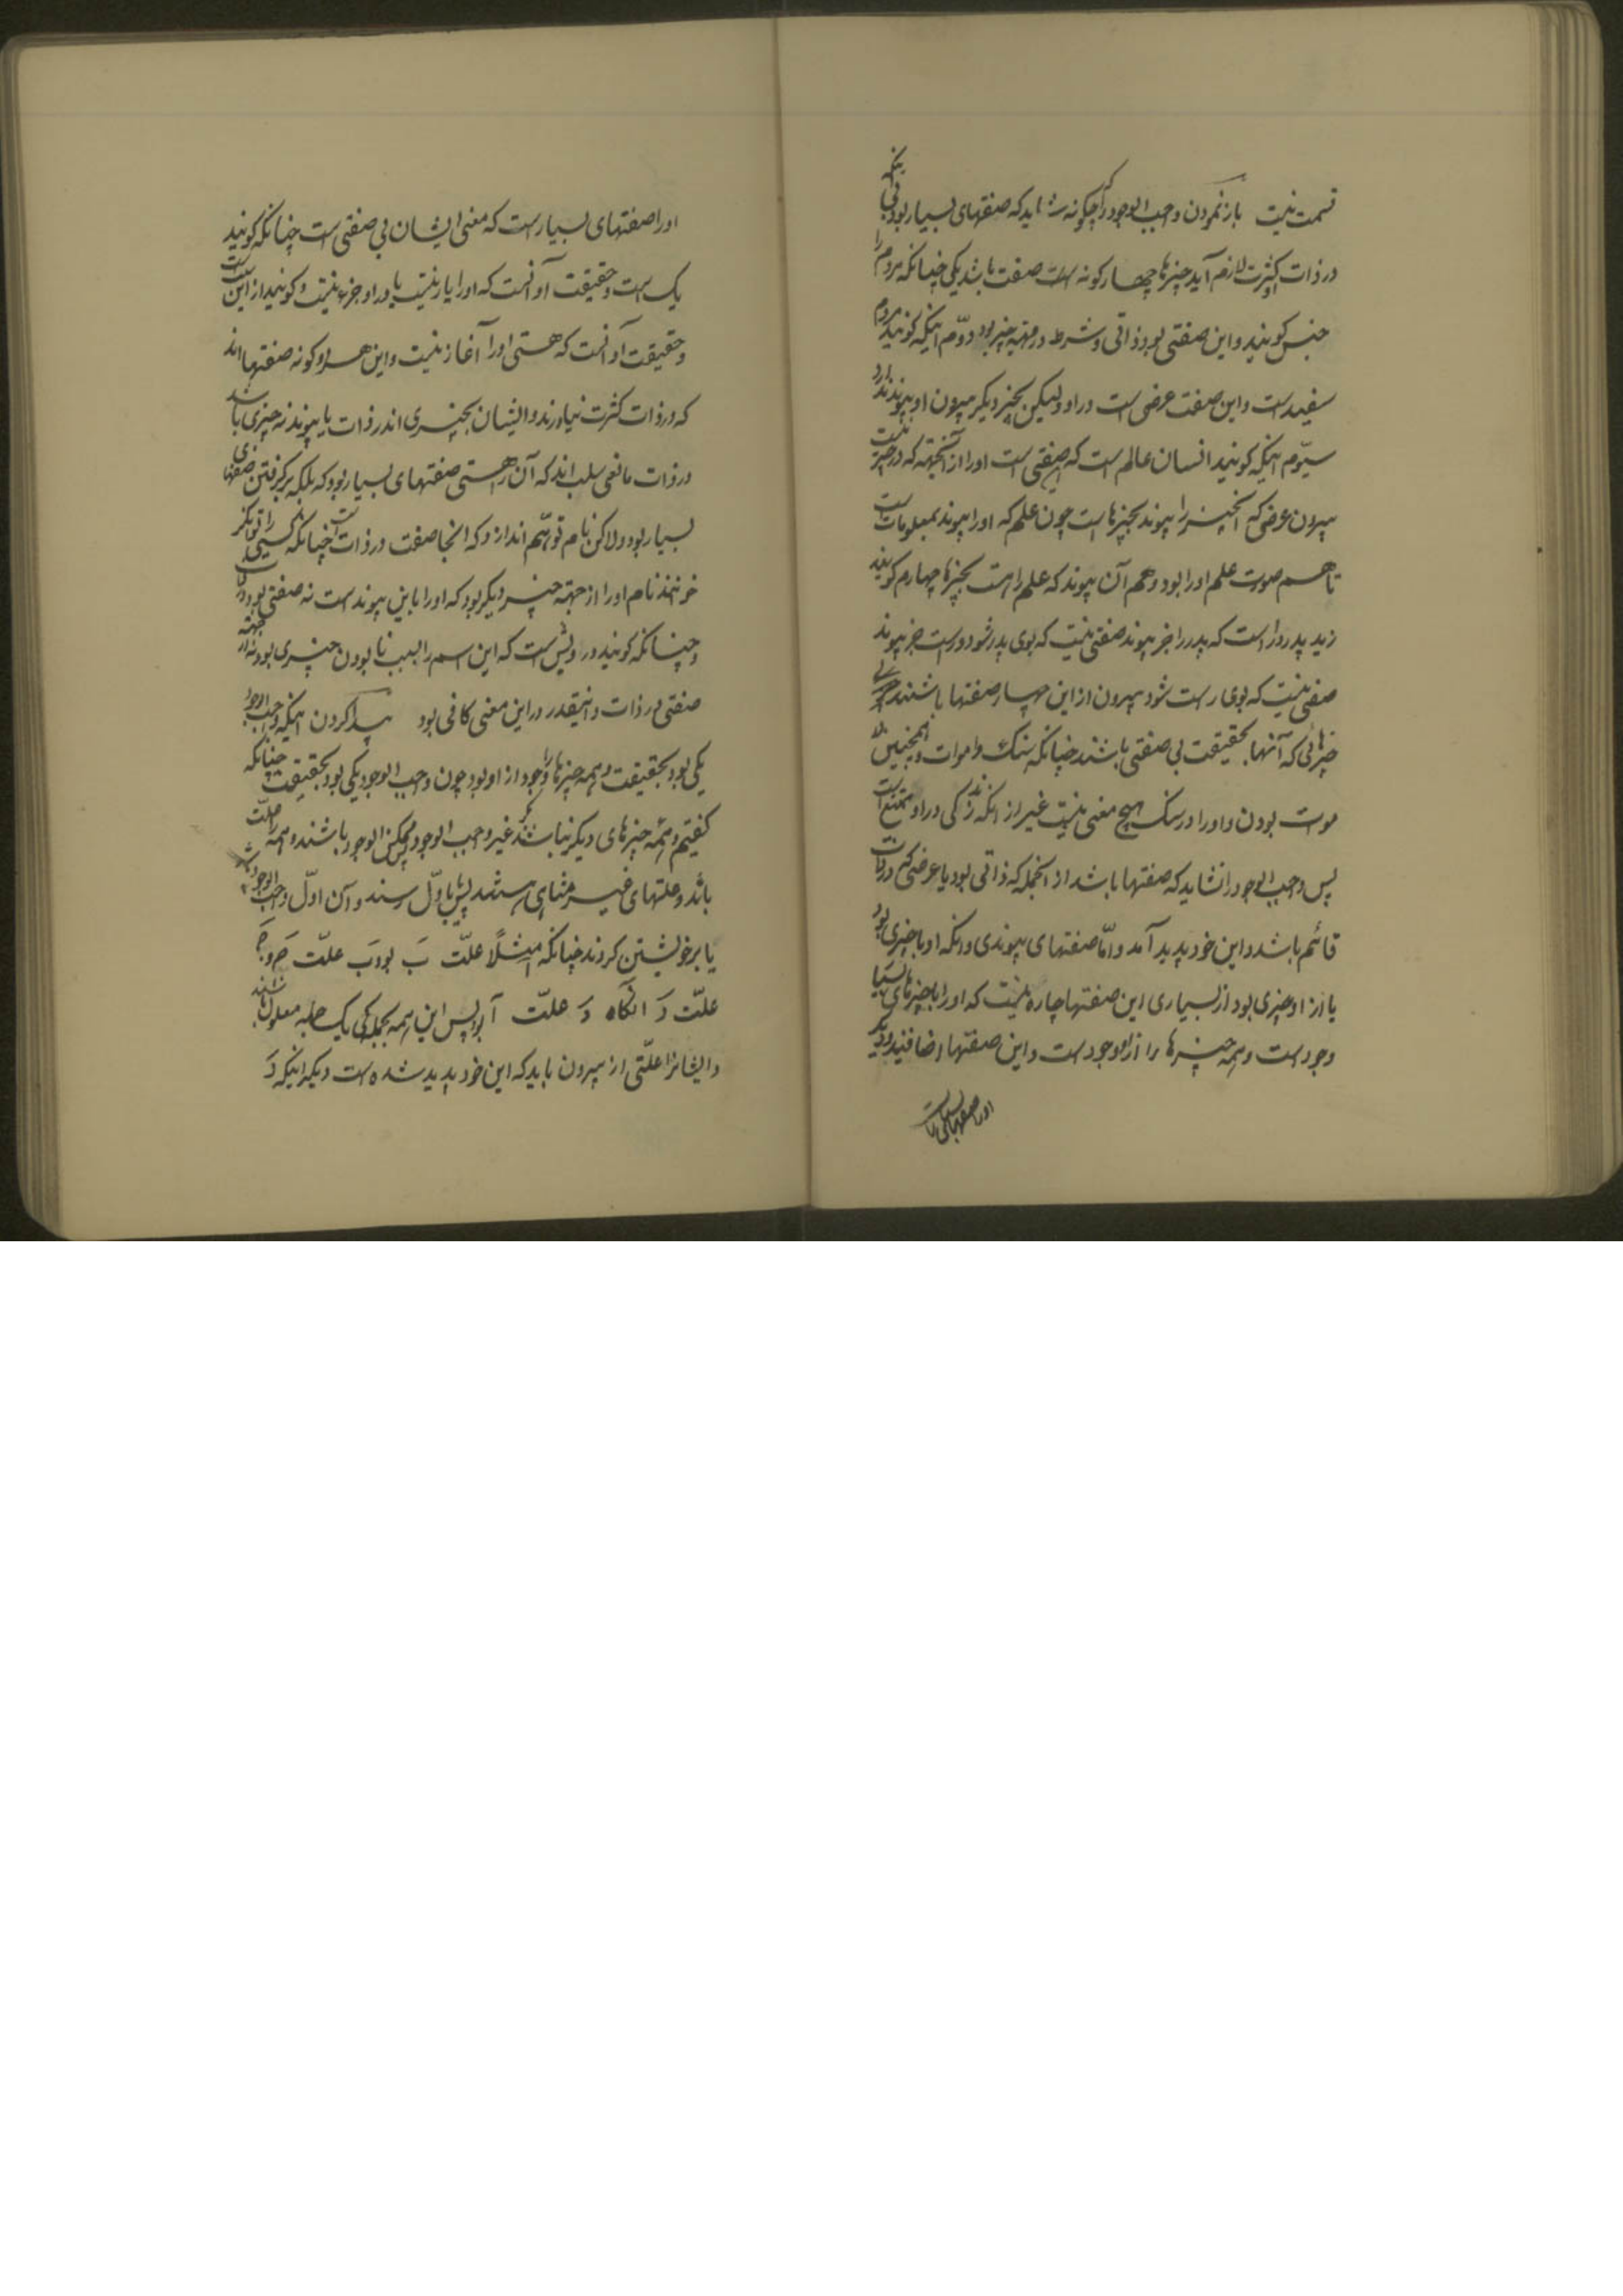 قسمت نیست بازنمودن واجب الوجود را که چگونه شاید که صفتهای بسیار بود بی آنکه
در ذات او کثرت لازم آید چیزها چهار گونه است صفت باشد یکی چنانکه مردم را
جنس گویند و این صفتی بود ذاتی و شرط در مهیه چیز بود دوّم اینکه گویند مردم
سفید است و این صفت عرضی است در او و لیکن بچیز دیگر بیرون او پیوند ندارد
سیّوم اینکه گویند انسان عالم است که این صفتی است او را از آنجهته که در چیز نیست
بیرون عرضی که آنچیز را پیوند بچیزها است چون علم که او را پیوند بمعلومات است
تا هم صورت علم او را بود و هم آن پیوند که علم را هست بچیزها چهارم گویند
زید پدر دارا است که پدر را جز پیوند صفتی نیست که بوی پدر شود و راست جز پیوند
صفتی نیست که بوی راست شود بیرون از این چهار صفتها باشند مر
چیزهائی که آنها بحقیقت بی صفتی باشند چنانکه سنک و اموات و همچنین
موت بودن و او را در سنک هیچ معنی نیست غیر از انکه زندگی در او ممتنع است
پس واجب الوجود را نشاید که صفتها باشد از انجمله که ذاتی بود یا عرضی که در ذات
قائم باشد و این خود پدید آمد و امّا صفتهای پیوندی و انکه او با چیزی بود
یا از او چیزی بود از بسیاری این صفتها چاره نیست که او را با چیزهای بسیار
وجود است و همه چیزها را از او وجود است و این صفتها اضافتیند و دیگر
او را صفتهای بسیار است
او را صفتهای بسیار است که معنی ایشان بی صفتی است چنانکه گویند
یک است و حقیقت آو آنست که او را یار نیست یا در او جزء نیست و گویند ازلیست
و حقیقت آو آنست که هستی او را آغاز نیست و این هر دو گونه صفتها اند
که در ذات کثرت نیاورند و ایشان بچیزی اندر ذات یا پیوند نه چیزی باشد
در ذات مانعی سلب اند که آن را هستی صفتهای بسیار بود که بلکه برگرفتن صفتهای
بسیار بود ولاکن نام توهّم اندازد که انجا صفت در ذات است چنانکه کسی را توانگر
خوانند نام او را از جهته چیز دیگر بود که او را با این پیوند است نه صفتی بود در ذات
و چنانکه گویند درویش است که این اسم را بسبب نا بودن چیزی بود نه از جهته
صفتی در ذات و اینقدر در این معنی کافی بود پیدا کردن اینکه واجب الوجود
یکی بود بحقیقت و همه چیزها را وجود از او بود چون واجب الوجود یکی بود بحقیقت چنانکه
گفتیم و همه چیزهای دیگر نباشند مگر غیر واجب الوجود پس ممکن الوجود باشند و همه را علّت
باشد و علتهای غیر متناهی نیستند پس یا باوّل رسند و آن اوّل واجب الوجود باشد
یا بر خویشتن گردند چنانکه آ مثلاً علّت بَ بود بَ علّت جَ و جَ
علّت دَ انگاه دَ علّت آ بود پس این همه بجملگی یک جمله معلول باشند
و ایشانرا علّتی از بیرون باید که این خود پدید شده است دیگر اینکه دَ